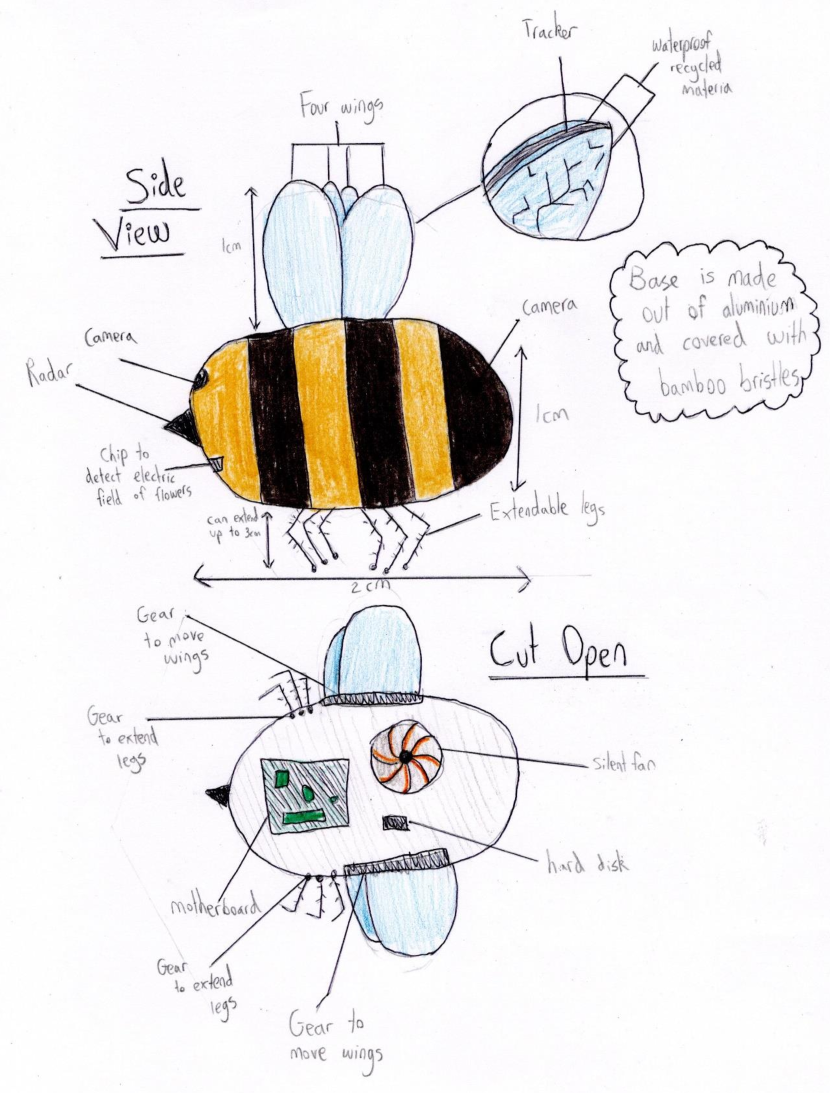 Tracker
waterproof
recycled
materia
Four wings
Side
View
1cm
Camera
Radar
Chip to
detect electric
field of flowers
camera
1cm
Base is made
out of aluminium
and covered with
bamboo bristles
can extend
up to 3cm
Extendable legs
2cm
Gear
to move
wings
Cut Open
Gear
to extend
legs
silent fan
hard disk
motherboard
Gear
to extend
legs
Gear to
move wings